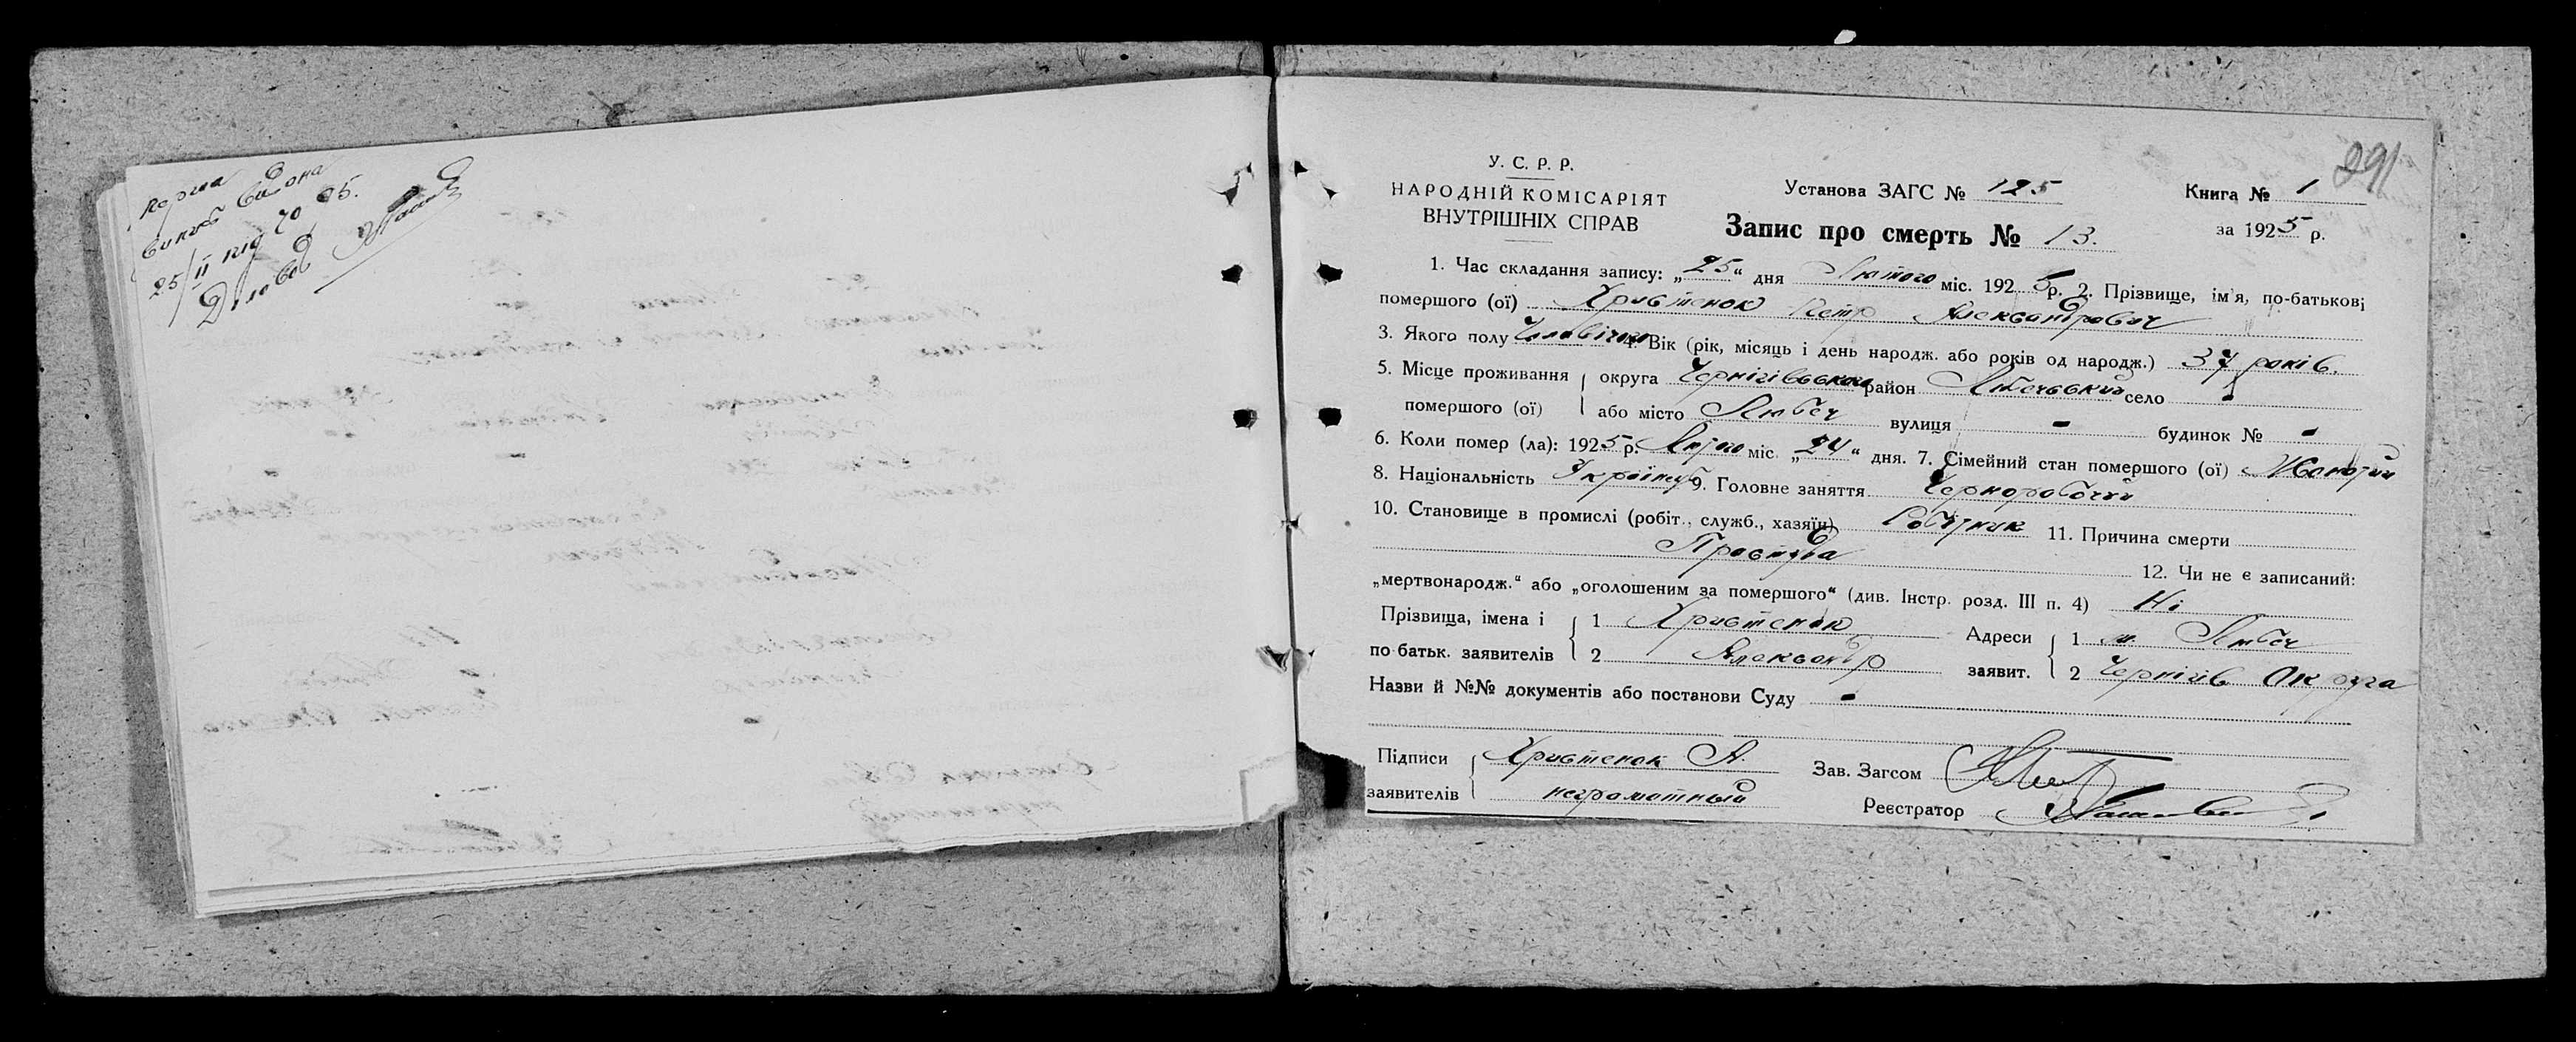 форма
видана
25/II під 70 25.
Діловод
291
У. С. Р. Р.
НАРОДНІЙ КОМІСАРІЯТ
ВНУТРІШНІХ СПРАВ
Установа ЗАГС № 125
Книга № 1
Запис про смерть № 13.
за 1925 р.
1. Час складання запису: „25“ дня Лютого міс. 1925 р. 2. Прізвище, ім'я, по-батькові
помершого (ої) Христенок Петр Александрович
3. Якого полу Чоловічого 4. Вік (рік, місяць і день народж. або років од народж.) 37 років.
5. Місце проживання округа Чернігівського район Любечський село -
помершого (ої) або місто Любеч вулиця - будинок № -
6. Коли помер (ла): 1925 р. Лютого міс. „24“ дня. 7. Сімейний стан помершого (ої) Жонатий
8. Національність Українец 9. Головне заняття Чорноробочий
10. Становище в промислі (робіт., служб., хазяїн) Робітник 11. Причина смерти
Простуда 12. Чи не є записаний:
„мертвонародж.“ або „оголошеним за помершого“ (див. Інстр. розд. III п. 4) Ні
Прізвища, імена і 1 Христенок Адреси 1 м. Любеч
по батьк. заявителів 2 Александр заявит. 2 Чернігів Округа
Назви й №№ документів або постанови Суду -
Підписи Христенок А. Зав. Загсом
заявителів неграмотный Реєстратор